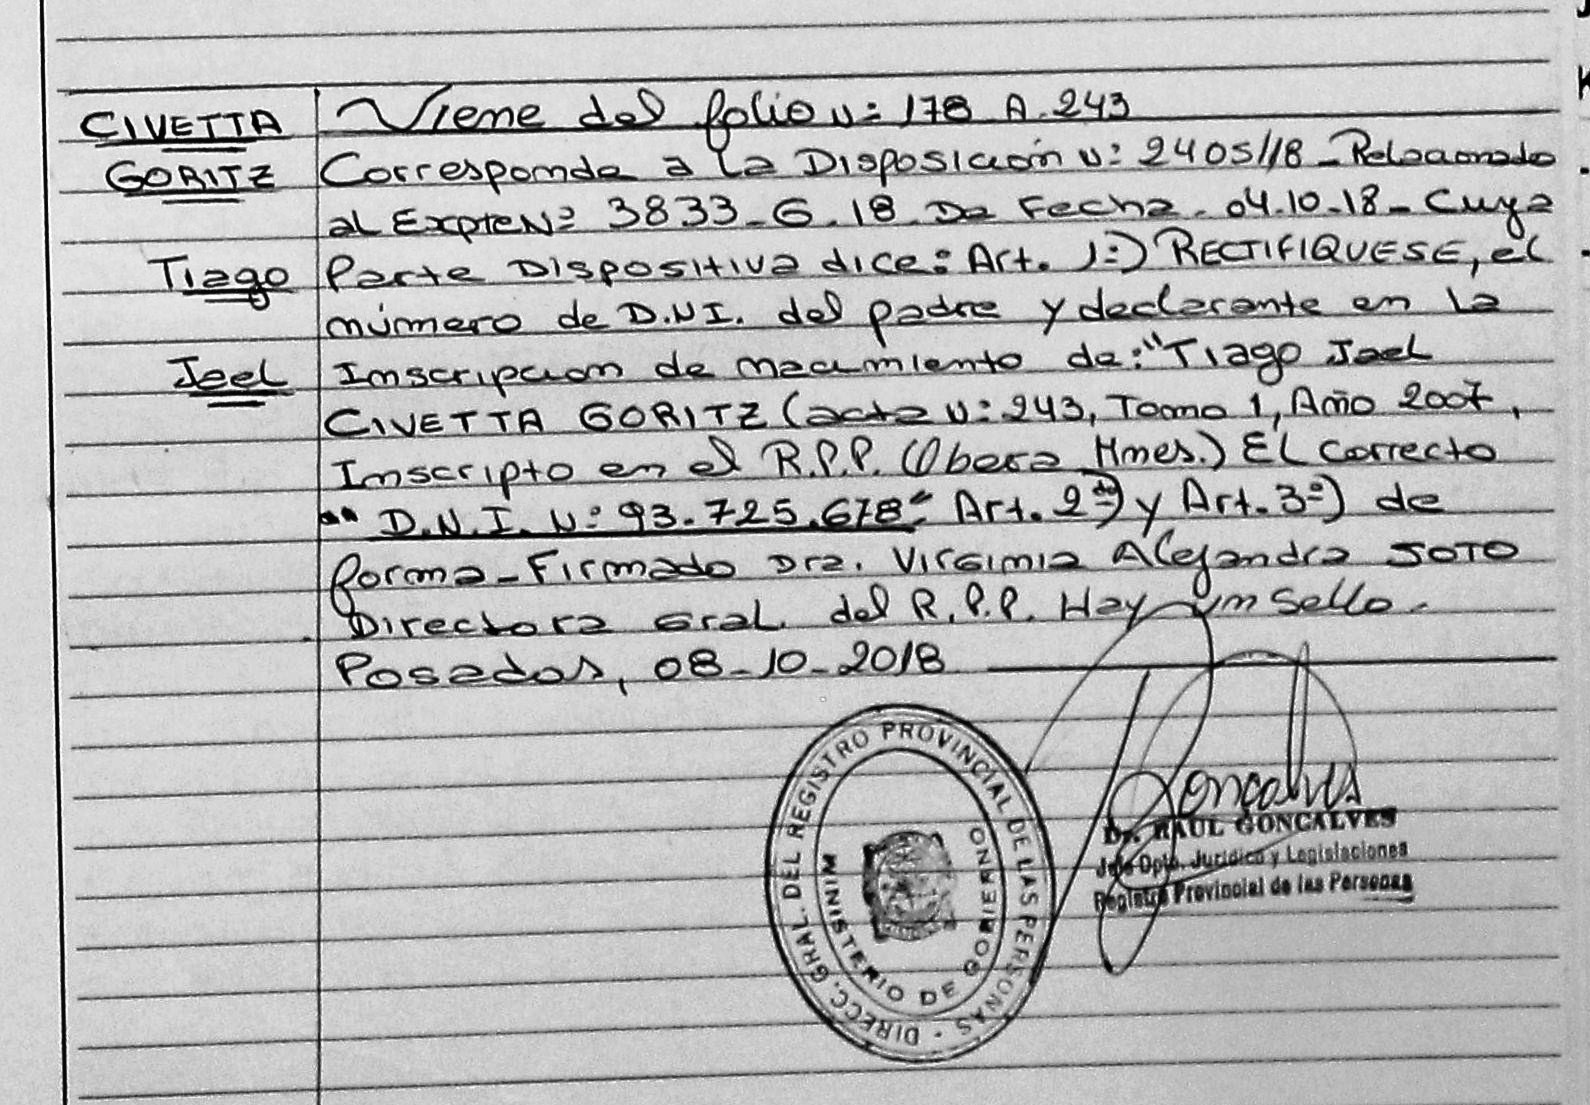 CIVETTA
GORITZ
Tiago
Joel
Viene del folio Nº 178 A. 243
Corresponde a la Disposición Nº 2405/18 - Relacionado
al Expte Nº 3833 - G. 18 De Fecha - 04.10-18 - Cuya
Parte Dispositiva dice: Art. 1º) RECTIFIQUESE, el
número de D.N.I. del padre y declarante en la
Inscripcion de nacimiento de: "Tiago Joel
CIVETTA GORITZ (acta Nº 243, Tomo 1, Año 2007,
Inscripto en el R.P.P. (Obera Mnes.) El correcto
"" D.N.I. Nº 93.725.678" Art. 2do) y Art. 3º) de
forma - Firmado Dra. Virginia Alejandra SOTO
Directora Gral. del R.P.P. Hay un sello.
Posadas, 08-10-2018
DIRECC. GRAL. DEL REGISTRO PROVINCIAL DE LAS PERSONAS -
MINISTERIO DE GOBIERNO
Goncalves
Dr. RAUL GONCALVES
Jefe Dpto. Jurídico y Legislaciones
Registro Provincial de las Personas